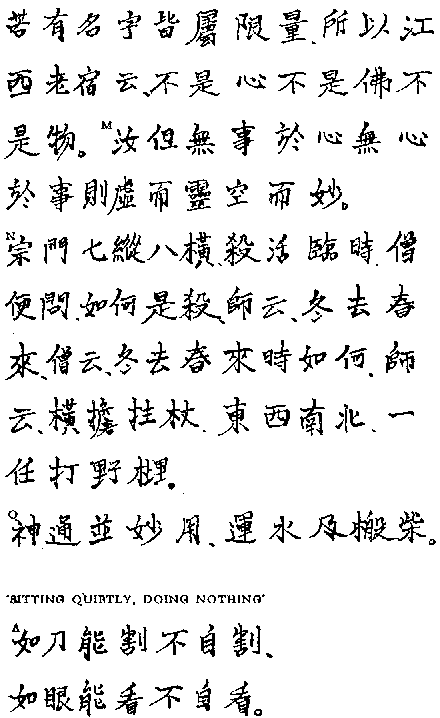 若有名字皆屬限量、所以江
西老宿云、不是心不是佛不
是物。M汝但無事於心無心
於事則虛而靈空而妙。
N宗門七縱八橫、殺活臨時、僧
便問、如何是殺、師云、冬去春
來、僧云、冬去春來時如何、師
云、橫擔拄杖、東西南北、一
任打野榸。
O神通並妙用、運水及搬柴。
'SITTING QUIETLY, DOING NOTHING'
A如刀能割不自割、
如眼能看不自看。